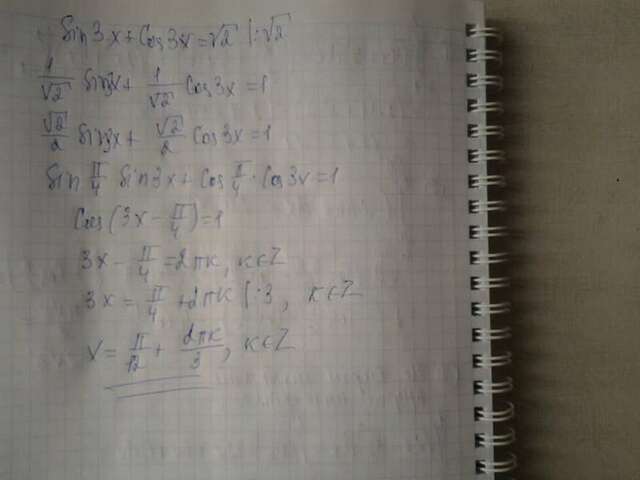 Sin3x + Cos3x = √2 | :√2
1/√2 Sin3x + 1/√2 Cos3x = 1
√2/2 Sin3x + √2/2 Cos3x = 1
Sin π/4 Sin3x + Cos π/4 · Cos3x = 1
Cos(3x − π/4) = 1
3x − π/4 = 2πk, k∈Z
3x = π/4 + 2πk | :3, k∈Z
x = π/12 + 2πk/3, k∈Z